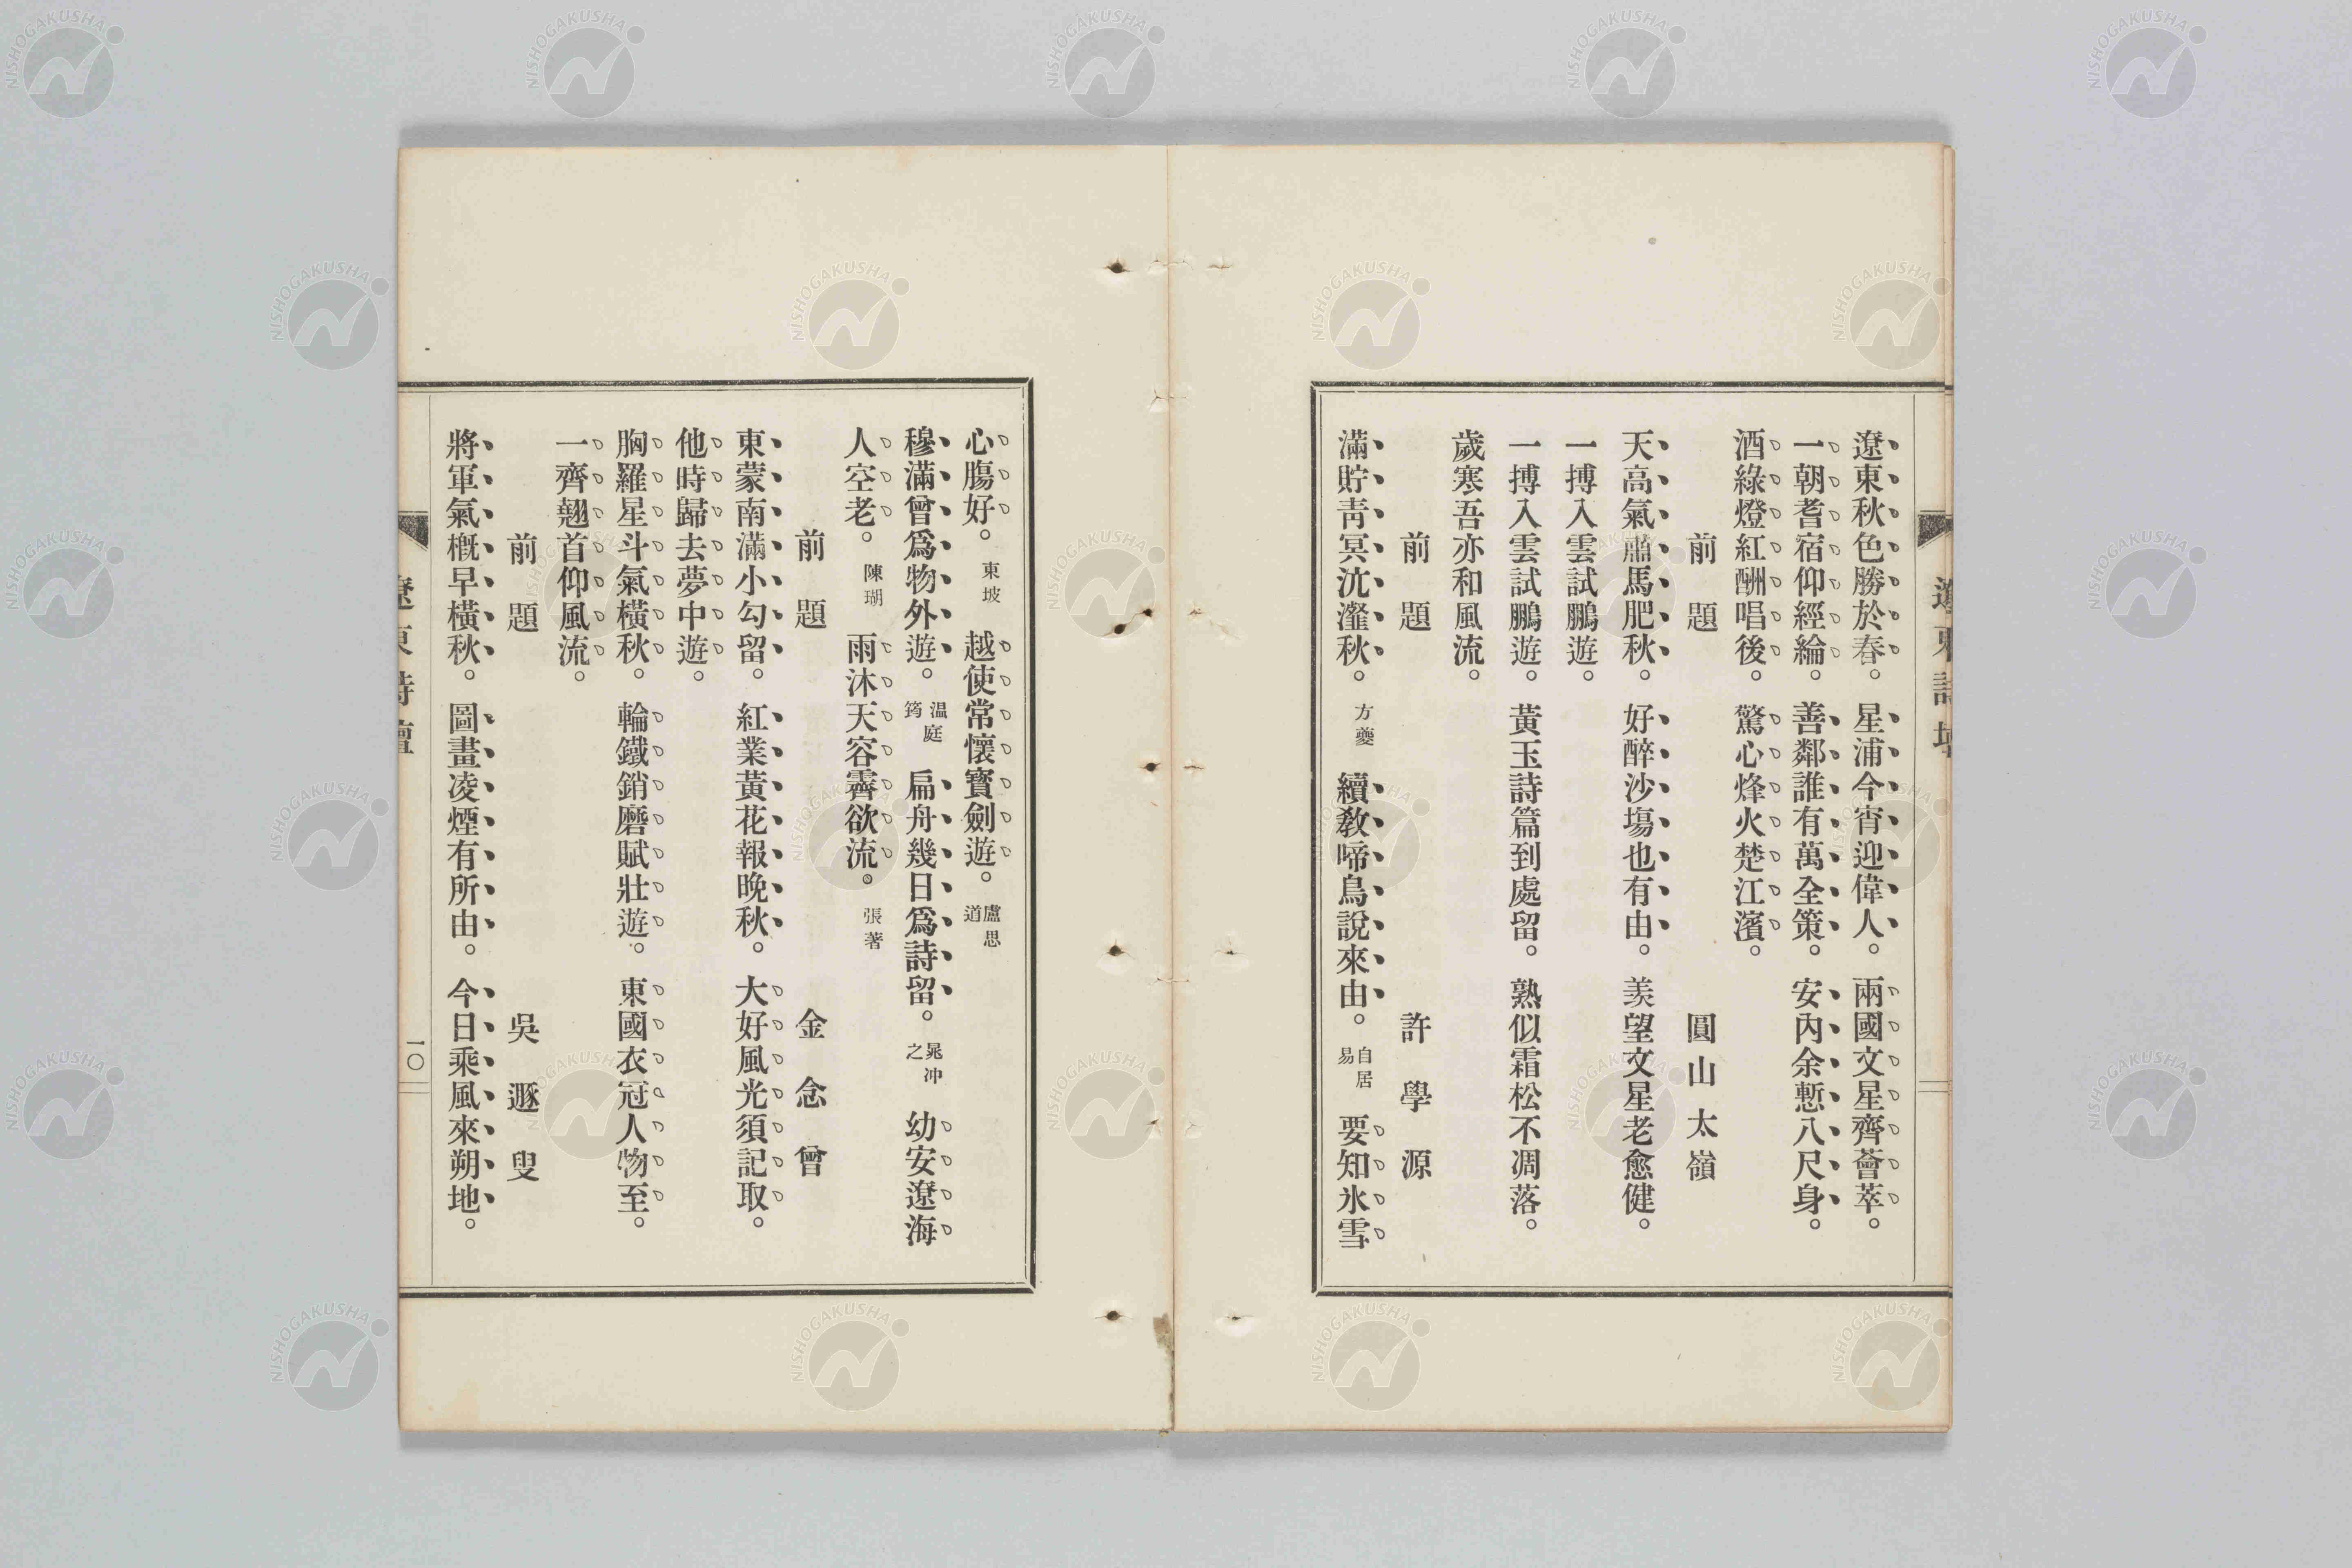 遼東秋色勝於春。星浦今宵迎偉人。兩國文星齊薈萃。
一朝耆宿仰經綸。善鄰誰有萬全策。安內余慙八尺身。
酒綠燈紅酬唱後。驚心烽火楚江濱。
前題 圓山太嶺
天高氣肅馬肥秋。好醉沙塲也有由。羨望文星老愈健。
一搏入雲試鵬遊。
一搏入雲試鵬遊。黃玉詩篇到處留。熟似霜松不凋落。
歲寒吾亦和風流。
前題 許學源
滿貯靑冥沆瀣秋。方夔 續敎啼鳥說來由。自居易 要知氷雪
遼東詩壇
心膓好。東坡 越使常懷寶劍遊。盧思道
穆滿曾爲物外遊。温庭筠 扁舟幾日爲詩留。晁冲之 幼安遼海
人空老。陳瑚 雨沐天容霽欲流。張著
前題 金念曾
東蒙南滿小勾留。紅業黃花報晚秋。大好風光須記取。
他時歸去夢中遊。
胸羅星斗氣橫秋。輪鐵銷磨賦壯遊。東國衣冠人物至。
一齊翹首仰風流。
前題 吳遯叟
將軍氣槪早橫秋。圖畫凌煙有所由。今日乘風來朔地。
遼東詩壇
一〇
NISHOGAKUSHA